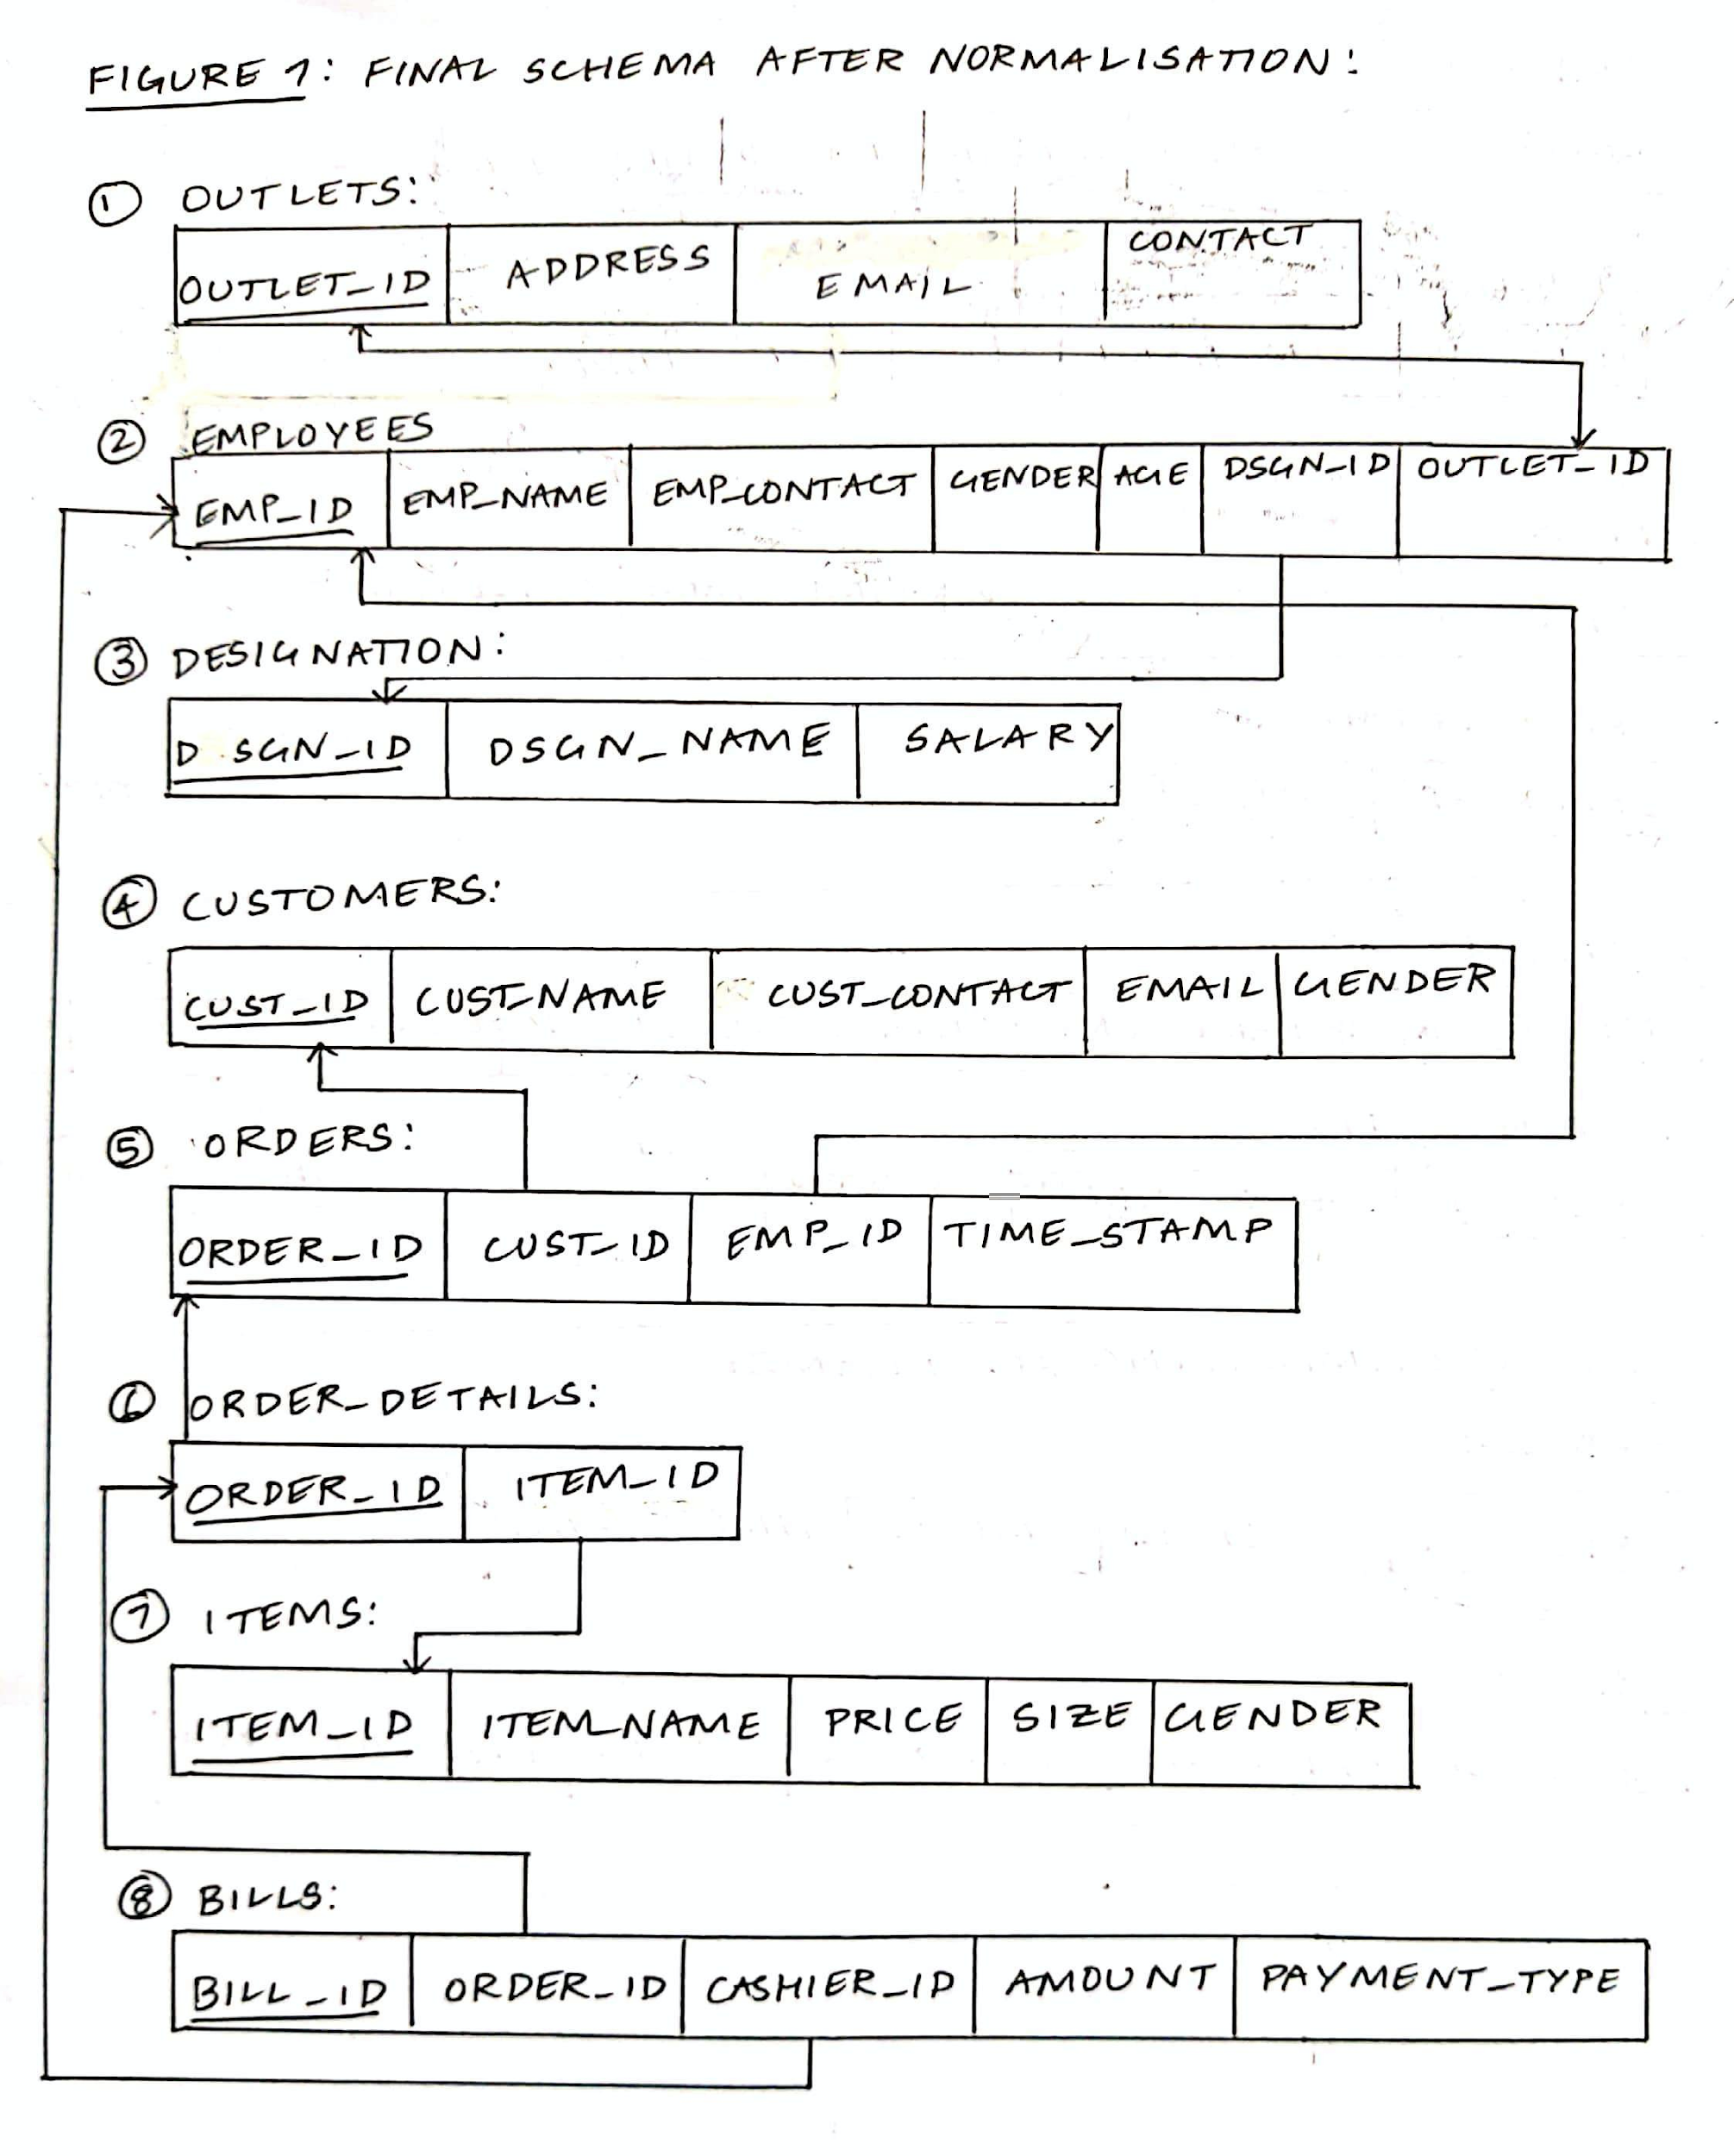 FIGURE 1: FINAL SCHEMA AFTER NORMALISATION:
① OUTLETS:
OUTLET_ID ADDRESS EMAIL CONTACT
② EMPLOYEES
EMP_ID EMP_NAME EMP_CONTACT GENDER AGE DSGN_ID OUTLET_ID
③ DESIGNATION:
D SGN_ID DSGN_NAME SALARY
④ CUSTOMERS:
CUST_ID CUST_NAME CUST_CONTACT EMAIL GENDER
⑤ ORDERS:
ORDER_ID CUST_ID EMP_ID TIME_STAMP
⑥ ORDER_DETAILS:
ORDER_ID ITEM_ID
⑦ ITEMS:
ITEM_ID ITEM_NAME PRICE SIZE GENDER
⑧ BILLS:
BILL_ID ORDER_ID CASHIER_ID AMOUNT PAYMENT_TYPE